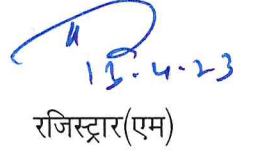 13.4.23
रजिस्ट्रार(एम)